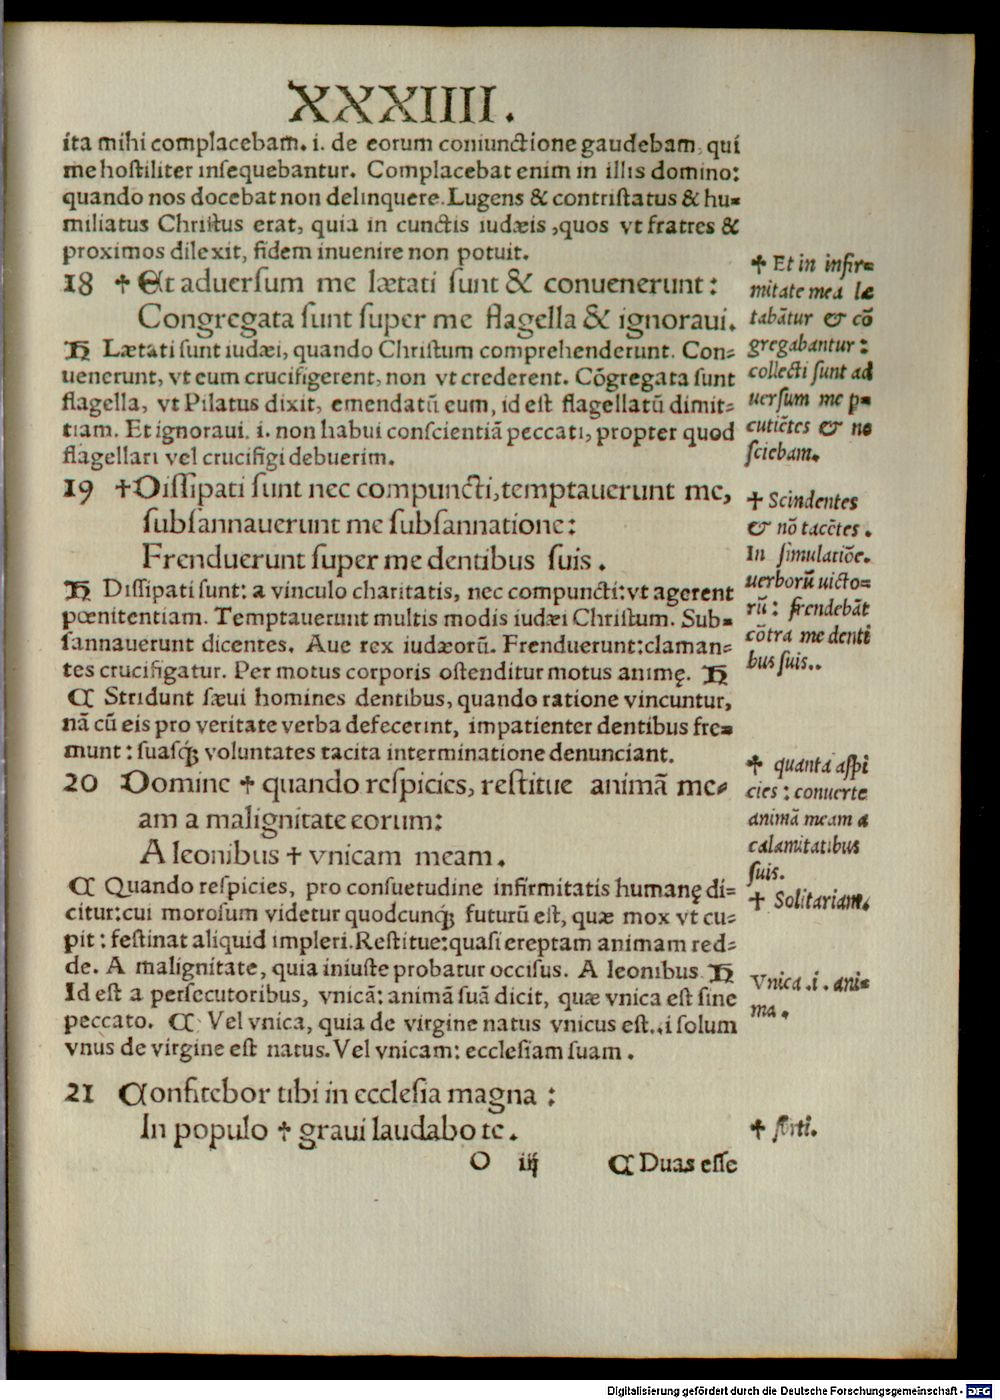 XXXIIII.
ita mihi complacebam. i. de eorum coniunctione gaudebam, qui
me hostiliter insequebantur. Complacebat enim in illis domino:
quando nos docebat non delinquere. Lugens & contristatus & hu=
miliatus Christus erat, quia in cunctis iudæis, quos vt fratres &
proximos dilexit, fidem inuenire non potuit.
18 ✝ Et aduersum me lætati sunt & conuenerunt:
Congregata sunt super me flagella & ignoraui.
H Lætati sunt iudæi, quando Christum comprehenderunt. Con=
uenerunt, vt eum crucifigerent, non vt crederent. Cōgregata sunt
flagella, vt Pilatus dixit, emendatū eum, id est flagellatū dimit=
tiam. Et ignoraui. i. non habui conscientiā peccati, propter quod
flagellari vel crucifigi debuerim.
✝ Et in infir=
mitate mea le
tabātur & cō
gregabantur:
collecti sunt ad
uersum me p=
cutiētes & ne
sciebam.
19 ✝ Dissipati sunt nec compuncti, temptauerunt me,
subsannauerunt me subsannatione:
Frenduerunt super me dentibus suis.
H Dissipati sunt: a vinculo charitatis, nec compuncti: vt agerent
pœnitentiam. Temptauerunt multis modis iudæi Christum. Sub=
sannauerunt dicentes. Aue rex iudæorū. Frenduerunt: claman=
tes crucifigatur. Per motus corporis ostenditur motus animę. H
C Stridunt sæui homines dentibus, quando ratione vincuntur,
nā cū eis pro veritate verba defecerint, impatienter dentibus fre=
munt: suasq; voluntates tacita interminatione denunciant.
✝ Scindentes
& nō tacētes.
In simulatiōe.
uerborū uicto=
rū: frendebāt
cōtra me denti
bus suis..
20 Domine ✝ quando respicies, restitue animā me=
am a malignitate eorum:
A leonibus ✝ vnicam meam.
C Quando respicies, pro consuetudine infirmitatis humanę di=
citur: cui morosum videtur quodcunq; futurū est, quæ mox vt cu=
pit: festinat aliquid impleri. Restitue: quasi ereptam animam red=
de. A malignitate, quia iniuste probatur occisus. A leonibus H
Id est a persecutoribus, vnicā: animā suā dicit, quæ vnica est sine
peccato. C Vel vnica, quia de virgine natus vnicus est..i solum
vnus de virgine est natus. Vel vnicam: ecclesiam suam.
✝ quanta aspi
cies: conuerte
animā meam a
calamitatibus
suis.
✝ Solitariam.
Vnica .i. ani=
ma.
21 Confitebor tibi in ecclesia magna:
In populo ✝ graui laudabo te.
✝ forti.
O iij C Duas esse
Digitalisierung gefördert durch die Deutsche Forschungsgemeinschaft - DFG